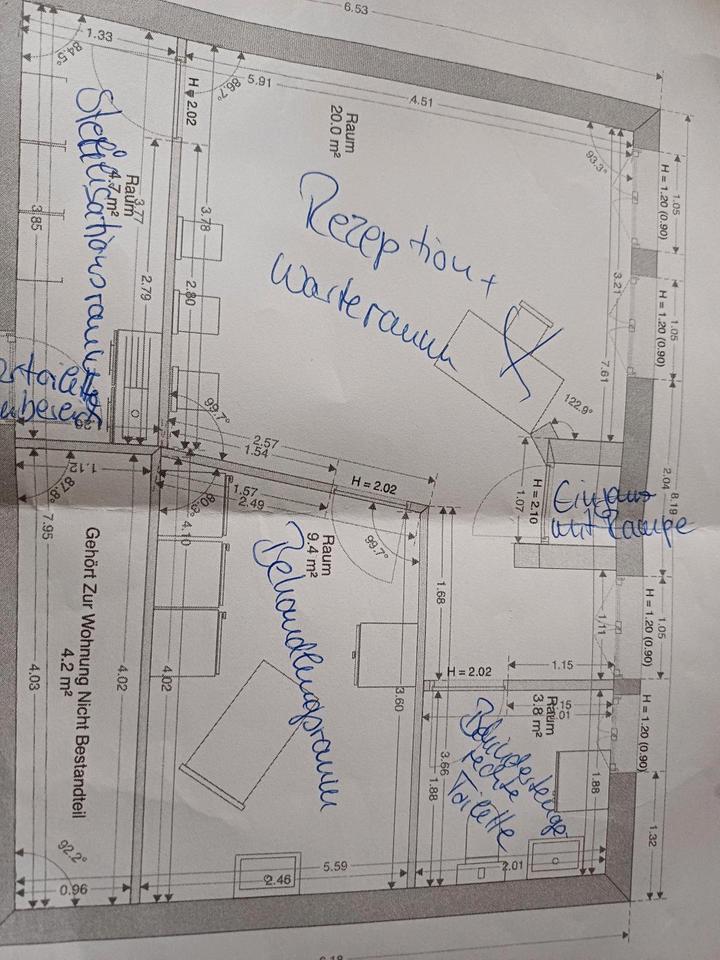 6.53
1.33
84.5°
86.7°
5.91
4.51
H = 2.02
Raum
20.0 m²
93.3°
1.05
H = 1.20 (0.90)
Sterilisationsraum
Raum
4.7 m²
3.77
3.78
3.85
2.79
2.80
Rezeption +
Warteraum
3.21
7.61
1.05
H = 1.20 (0.90)
122.9°
99.7°
2.57
1.54
H = 2.02
1.07
H = 2.10
Eingang
mit Rampe
2.04
8.19
1.12
87.8°
1.57
2.49
4.10
99.7°
7.95
Raum
9.4 m²
Behandlungsraum
1.68
1.11
1.05
H = 1.20 (0.90)
Gehört Zur Wohnung Nicht Bestandteil
4.2 m²
4.03
4.02
4.02
3.60
H = 2.02
1.15
Raum
3.8 m²
Behindertenge
rechte
Toilette
3.66
1.88
1.88
H = 1.20 (0.90)
1.32
92.2°
0.96
5.59
2.46
2.01